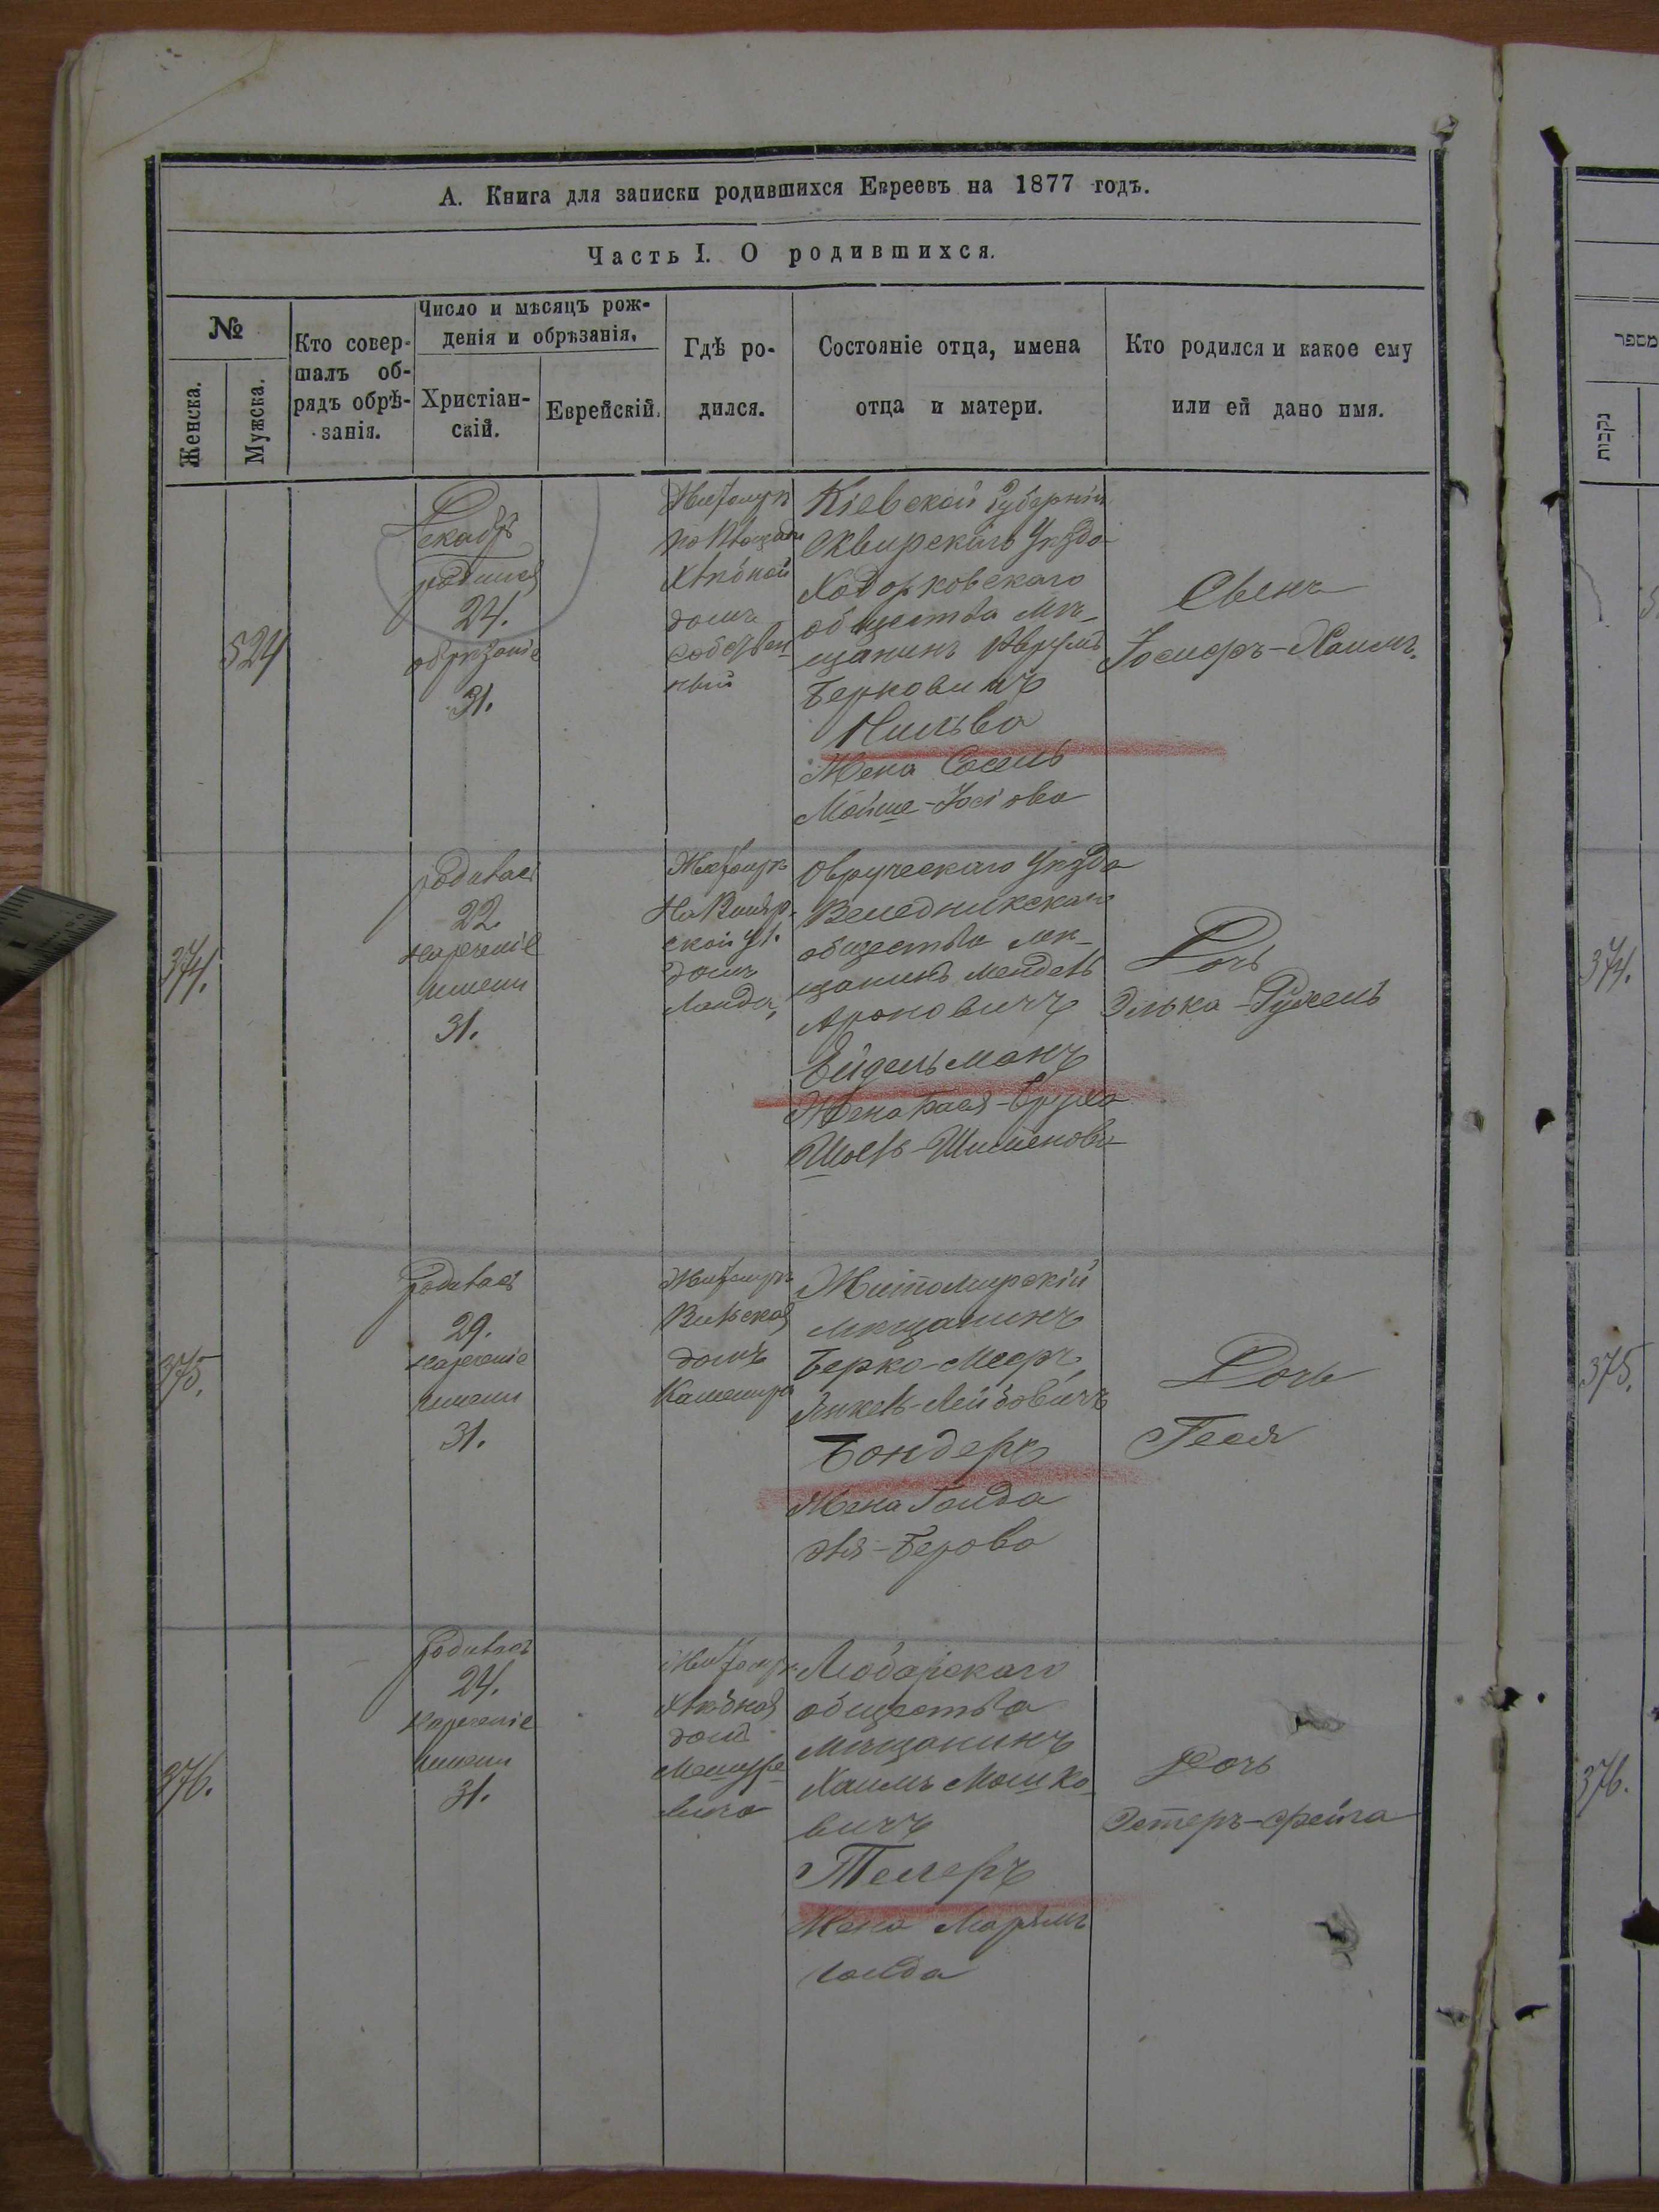 А. Книга для записки родившихся Евреевъ на 1877 годъ.
Часть I. О родившихся.
№
Женска.
Мужска.
Кто совер-
шалъ об-
рядъ обрѣ-
занія.
Число и мѣсяцъ рож-
денія и обрѣзанія.
Христіан-
скій.
Еврейскій.
Гдѣ ро-
дился.
Состояніе отца, имена
отца и матери.
Кто родился и какое ему
или ей дано имя.
524
Декабрь
родился
24.
обрѣзаніе
31.
Житомиръ
по Площади
Хлѣбной
домъ
собствен
ный
Кіевской Губерніи
Сквирскаго Уѣзда
Ходорковскаго
общества мѣ-
щанинъ Аврумъ
Берковичъ
Нильва
Жена Сосель
Мойше-Іосіова
Сынъ
Іосифъ-Хаимъ.
374.
родилась
22.
нареченіе
имени
31.
Житомиръ
ской ул.
домъ
Овручскаго Уѣзда
Веледникскаго
общества мѣ-
щанинъ Мендель
Ароновичъ
Ейдельманъ
Жена Бася-Бруха
Дочь
Элька-Рухель
375.
родилась
29.
нареченіе
имени
31.
Житомиръ
Вильская
домъ
Житомирскій
мѣщанинъ
Берко-Мееръ
Янкель-Лейбовичъ
Бондеръ
Жена Голда
Эля-Берова
Дочь
Геся
376.
родилась
24.
нареченіе
имени
31.
Житомиръ
Хлѣбная
домъ
Любарскаго
общества
мѣщанинъ
Хаимъ Мошко-
вичъ
Телеръ
Жена Марьямъ
Голда
Дочь
Эстеръ-Фейга
מספר
נקבות
374.
375.
376.